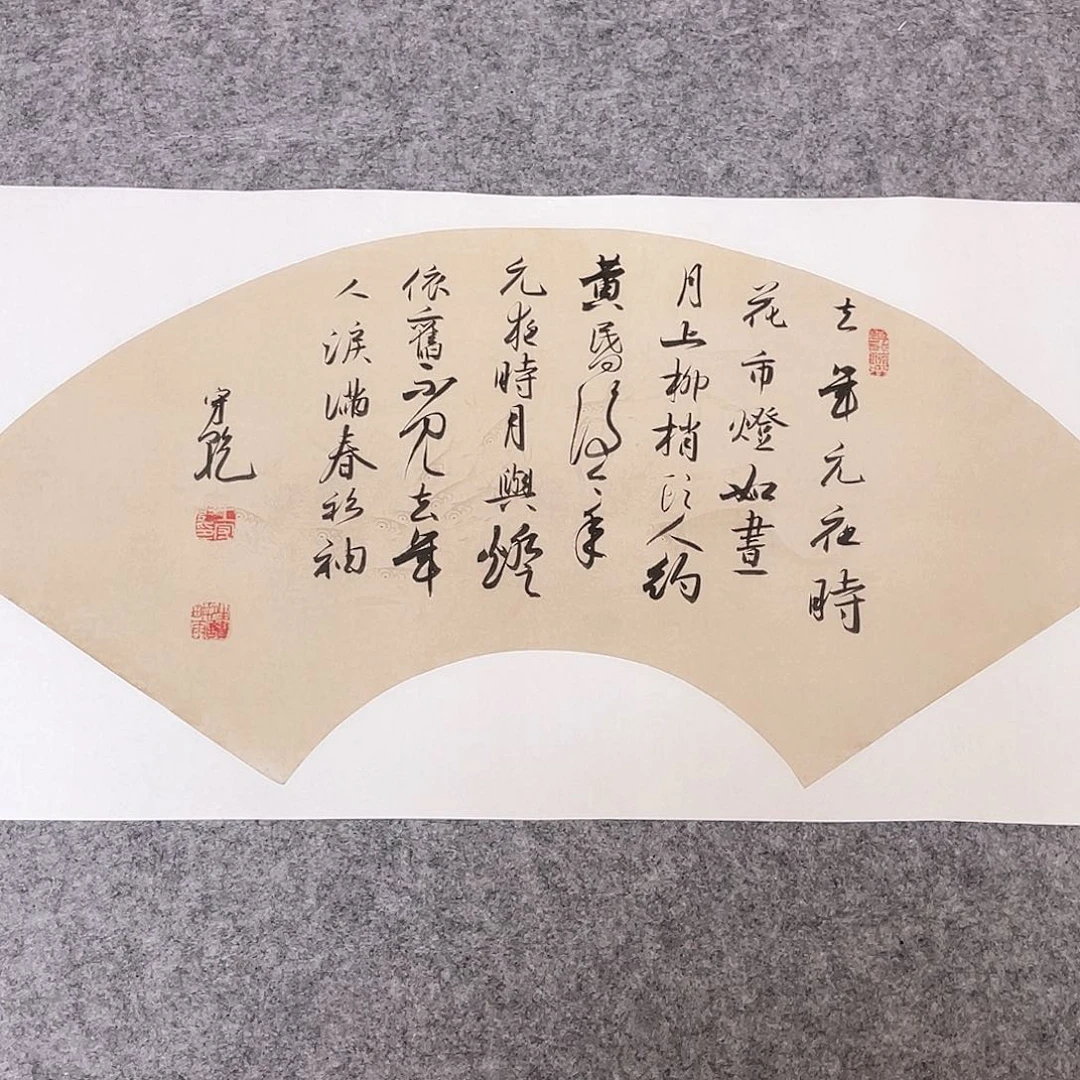 去年元夜時
花市燈如晝
月上柳梢頭人約
黃昏後今年
元夜時月與燈
依舊不見去年
人淚滿春衫袖
守乾